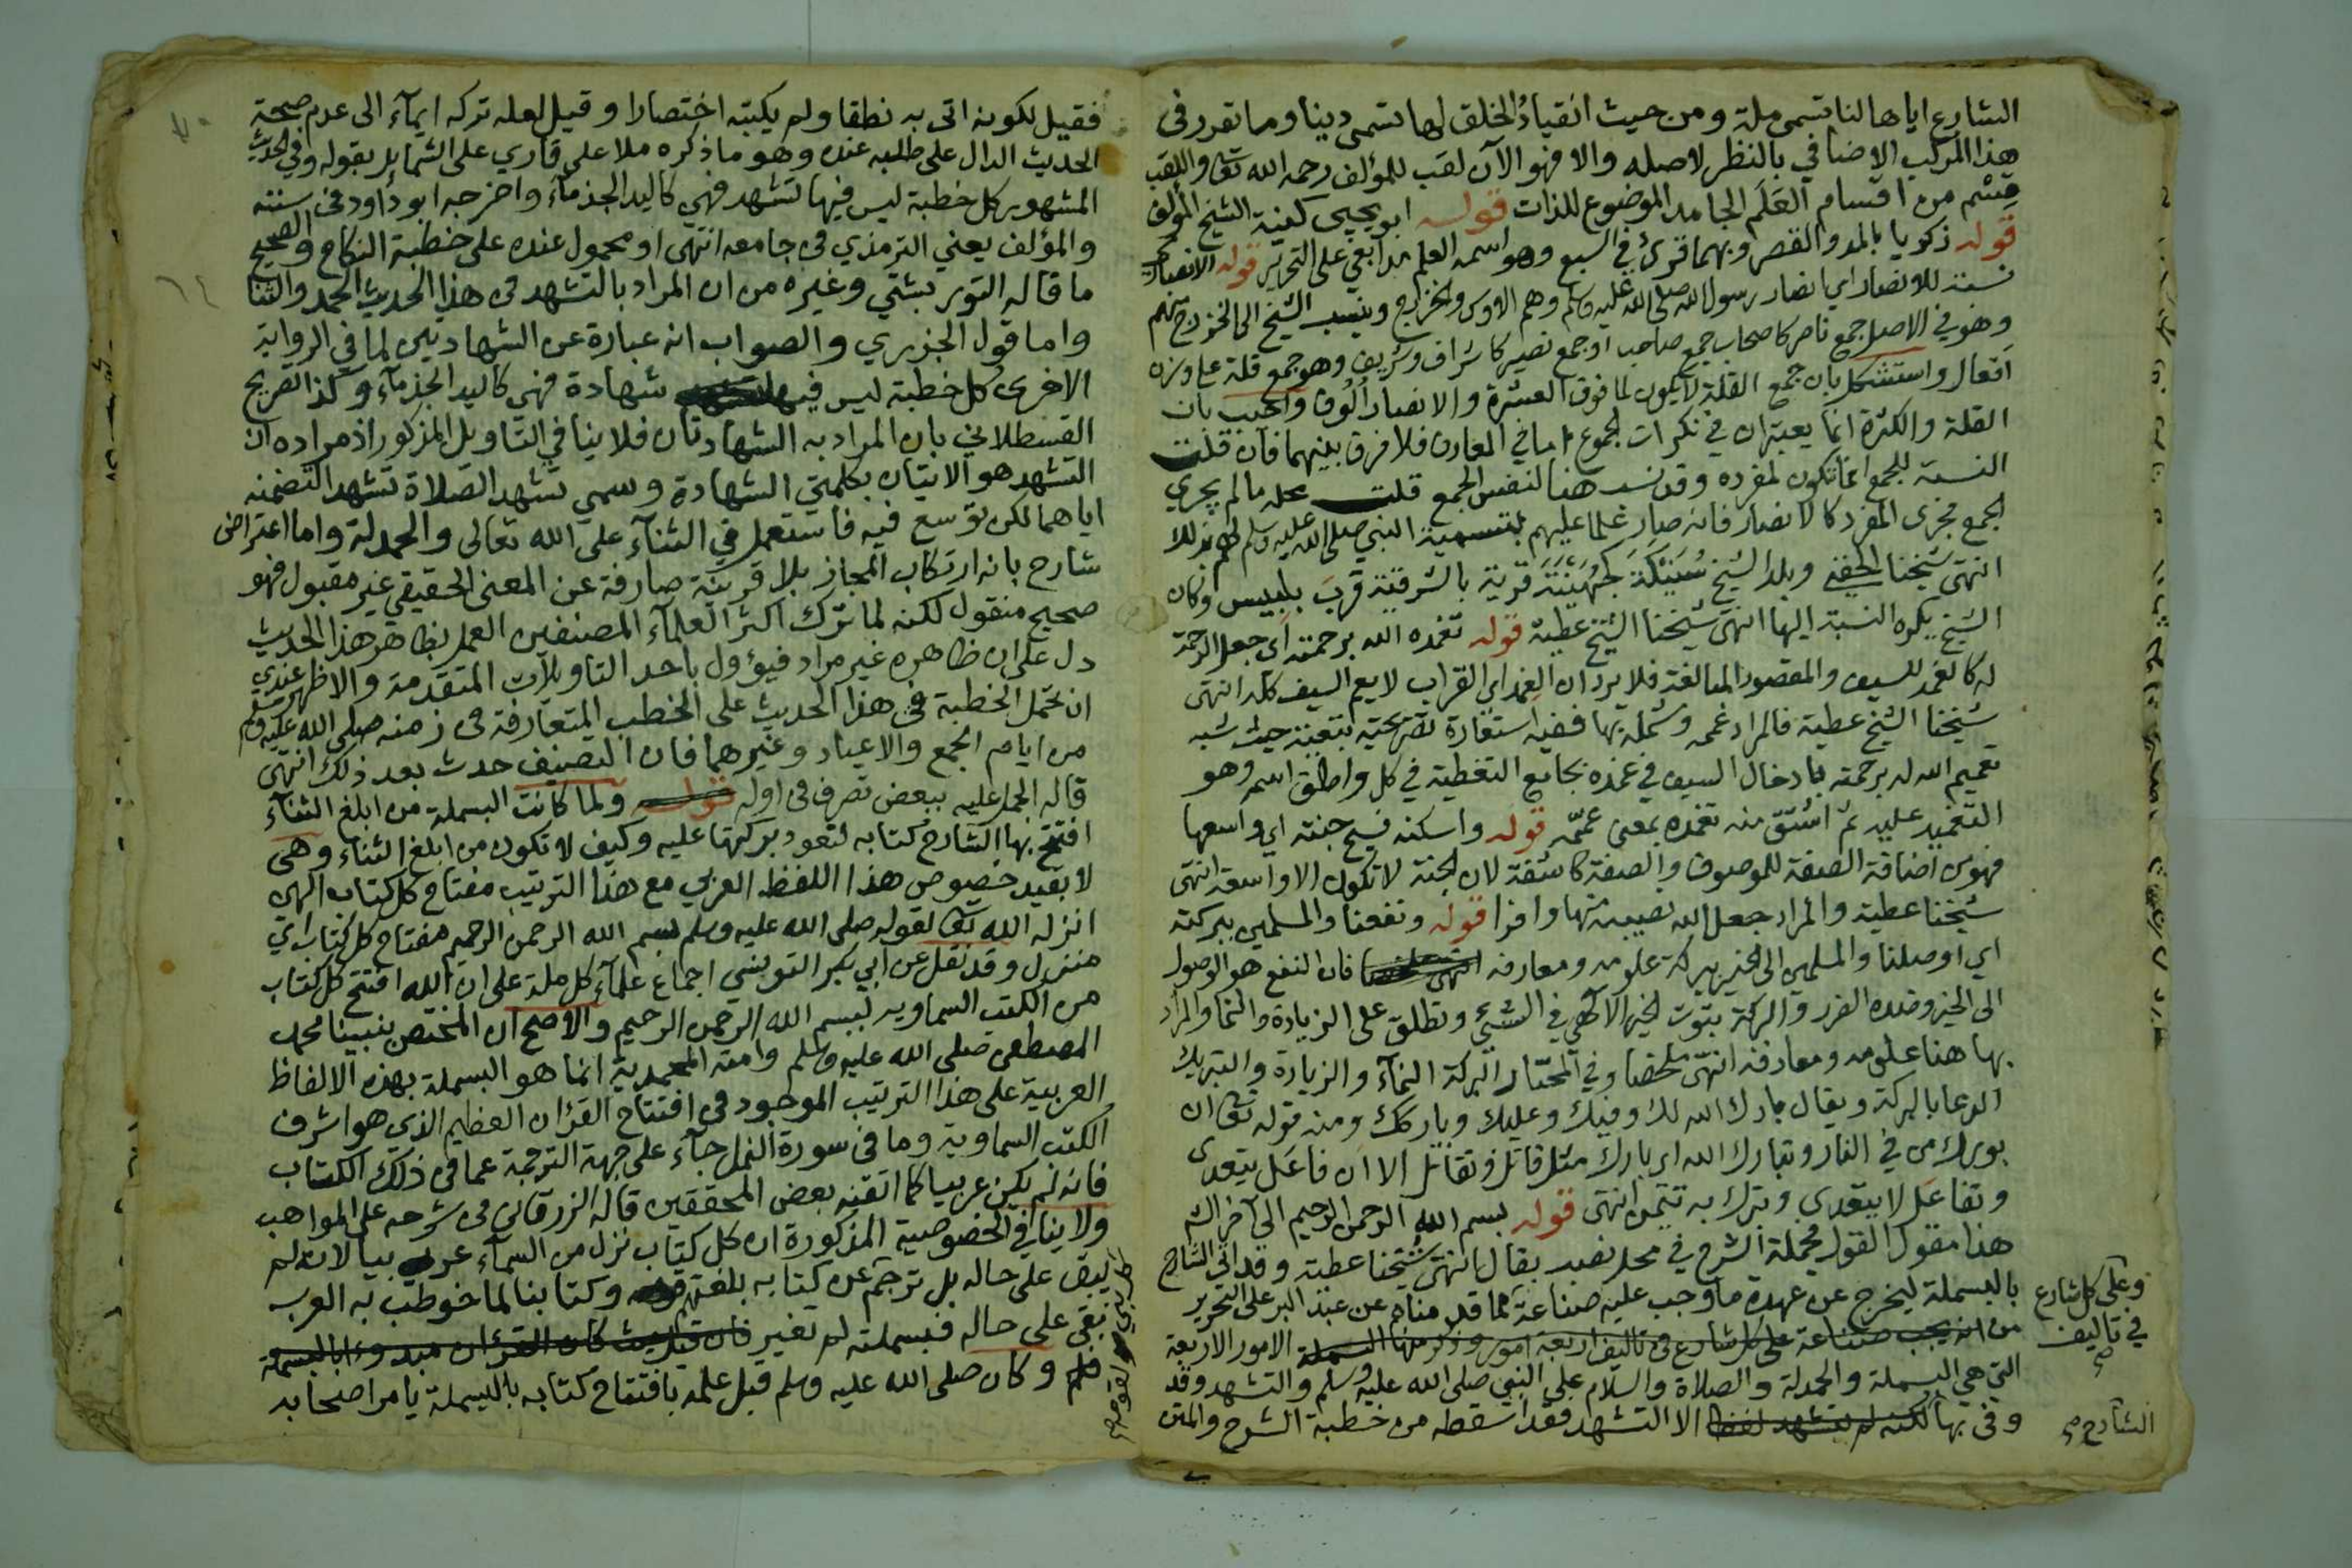 الشارع اياها لنا تسمى ملة ومن حيث انقيادُ الخلق لها تسمى دينا وما تقرر في
هذا المركب الاضافي بالنظر لاصله والا فهو الآن لقب للمؤلف رحمه الله تعا واللقب
قِسْم من اقسام العَلَم الجامد الموضوع للذات قوله ابو يحيى كنية الشيخ المؤلف
قوله زكريا بالمد والقصر وبهما قرئ في السبع وهو اسمه العلم مدابغي على التحرير قوله الانصاري
نسبة للانصار اي انصار رسول الله صلى الله عليه وسلم وهم الاوس والخزرج وينسب الشيخ الى الخزرج منهم
وهو في الاصل جمع ناصر كاصحاب جمع صاحب او جمع نصير كاشراف وشريف وهو جمع قلة على وزن
اَفعال واستشكل بان جمع القلة لا يكون لما فوق العشرة والانصار اُلُوف واجيب بان
القلة والكثرة انما يعتبران في نكرات الجموع اما في المعارف فلا فرق بينهما فان قلت
النسبة للجمع انما تكون لمفرده وقد نسب هنا لنفس الجمع قلت محله ما لم يجري
الجمع مجرى المفرد كالانصار فانه صار علما عليهم بتسمية النبي صلى الله عليه وسلم لهم بذلك
انتهى شيخنا الحفني وبلد الشيخ سُنَيْكَة كجُهَيْنَة قرية بالشرقية قرب بلبيس وكان
الشيخ يكره النسبة اليها انتهى شيخنا الشيخ عطية قوله تغمده الله برحمته اي جعل الرحمة
له كالغمد للسيف والمقصود المبالغة فلا يرد ان الغمد اي القراب لا يعم السيف كله انتهى
شيخنا الشيخ عطية فالمراد غمره وشمله بها ففيه استعارة تصريحية تبعية حيث شبه
تعميم الله له برحمته بادخال السيف في غمده بجامع التغطية في كل واطلق اسمه وهو
التغميد عليه ثم اشتق منه تغمده بمعنى عممّه قوله واسكنه فسيح جنته اي واسعها
فهو من اضافة الصفة للموصوف والصفة كاشفة لان الجنة لا تكون الا واسعة انتهى
شيخنا عطية والمراد جعل الله نصيبه منها وافرا قوله ونفعنا والمسلمين ببركته
اي اوصلنا والمسلمين الى الخير ببركة علومه ومعارفه فان النفع هو الوصول
الى الخير وضده الضرر والبركة ثبوت الخير الالهي في الشيء وتطلق على الزيادة والنما والمراد
بها هنا علومه ومعارفه انتهى ملخصا وفي المختار البركة النمآء والزيادة والتبريك
الدعا بالبركة ويقال بارك الله لك وفيك وعليك وباركك ومنه قوله تعا ان
بورك من في النار وتبارك الله اي بارك مثل قاتل وتقاتل الا ان فاعَل يتعدى
وتفاعَل لا يتعدى وتبرك به تيمن انتهى قوله بسم الله الرحمن الرحيم الى آخر الخ
هذا مقول القول فجملة الشرح في محل نصب بقال انتهى شيخنا عطية وقد اتى الشارح
بالبسملة ليخرج عن عهدة ما وجب عليه صناعة كما قدمناه عن عبد البر على التحرير
من انه يجب صناعة على كل شارع في تاليف اربعة امور وذكر منها البسملة الامور الاربعة
التي هي البسملة والحمدلة والصلاة والسلام على النبي صلى الله عليه وسلم والتشهد وقد
وفى بها لكنه لم يتشهد لفظا الا التشهد فقد اسقطه من خطبة الشرح والمتن
وعلى كل شارع
في تاليف
صح
الشارح صح
فقيل لكونه اتى به نطقا ولم يكتبه اختصارا وقيل لعله تركه ايمآء الى عدم صحة
الحديث الدال على طلبه عنده وهو ما ذكره ملا علي قاري على الشمايل بقوله وفي الحديث
المشهور كل خطبة ليس فيها تشهد فهي كاليد الجذمآء واخرجه ابو داود في سننه
والمؤلف يعني الترمذي في جامعه انتهى او محمول عنده على خطبة النكاح والصحيح
ما قاله التوربشتي وغيره من ان المراد بالتشهد في هذا الحديث الحمد والثنا
واما قول الجزري والصواب انه عبارة عن الشهادتين لما في الرواية
الاخرى كل خطبة ليس فيها شهادة فهي كاليد الجذمآء وكذا تصريح
القسطلاني بان المراد به الشهادتان فلا ينافي التاويل المذكور اذ مراده ان
التشهد هو الاتيان بكلمتي الشهادة وسمي تشهد الصلاة تشهدا لتضمنه
اياهما لكن توسع فيه فاستعمل في الثنآء على الله تعالى والحمدلة واما اعتراض
شارح بانه ارتكاب المجاز بلا قرينة صارفة عن المعنى الحقيقي غير مقبول فهو
صحيح منقول لكنه لما ترك اكثر العلمآء المصنفين العمل بظاهر هذا الحديث
دل على ان ظاهره غير مراد فيؤول باحد التاويلات المتقدمة والاظهر عندي
ان تحمل الخطبة في هذا الحديث على الخطب المتعارفة في زمنه صلى الله عليه وسلم
من ايام الجمع والاعياد وغيرهما فان التصنيف حدث بعد ذلك انتهى
قاله الجمل عليه ببعض تصرف في اوله قوله ولما كانت البسملة من ابلغ الثنآء
افتتح بها الشارح كتابه لتعود بركتها عليه وكيف لا تكون من ابلغ الثناء وهي
لا بقيد خصوص هذا اللفظ العربي مع هذا الترتيب مفتاح كل كتاب الهي
انزله الله تعا لقوله صلى الله عليه وسلم بسم الله الرحمن الرحيم مفتاح كل كتاب اي
منزل وقد نقل عن ابي بكر التونسي اجماع علمآء كل ملة على ان الله افتتح كل كتاب
من الكتب السماويه ببسم الله الرحمن الرحيم والاصح ان المختص بنبينا محمد
المصطفى صلى الله عليه وسلم وامته المحمدية انما هو البسملة بهذه الالفاظ
العربية على هذا الترتيب الموجود في افتتاح القرءان العظيم الذي هو اشرف
الكتب السماوية وما في سورة النمل جآء على جهة الترجمة عما في ذلك الكتاب
فانه لم يكن عربيا كما اتقنه بعض المحققين قاله الزرقاني في شرحه على المواهب
ولا ينافي الخصوصية المذكورة ان كل كتاب نزل من السمآء عربيا لانه لم
يبق على حاله بل ترجم عن كتابه بلغة وكتابنا لما خوطب به العرب
بقي على حاله فبسملته لم تغير فان قيل حيث كان القرءان مبدوءا بالبسملة
فلم وكان صلى الله عليه وسلم قبل علمه بافتتاح كتابه بالبسملة يامر اصحابه